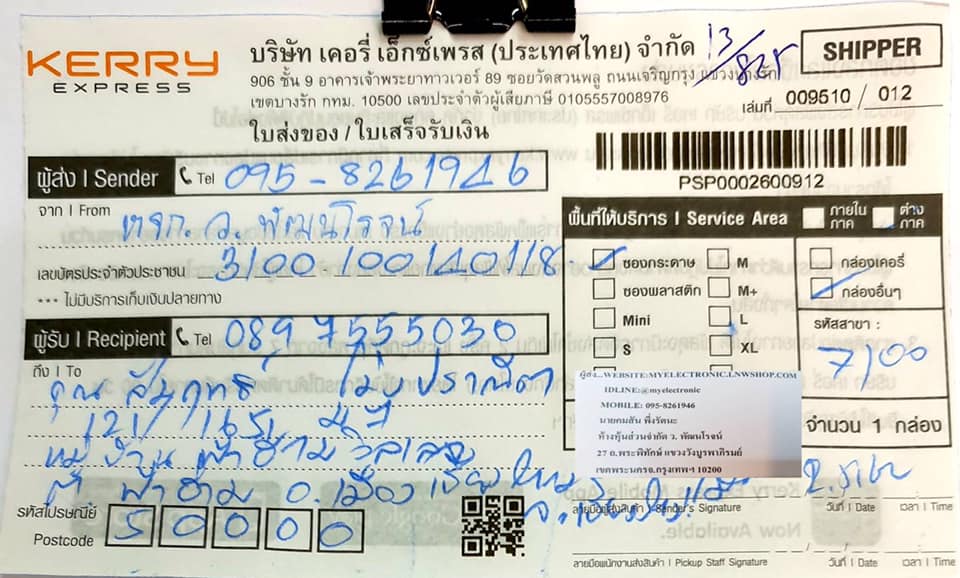 KERRY
EXPRESS
บริษัท เคอรี่ เอ็กซ์เพรส (ประเทศไทย) จำกัด
13/825
SHIPPER
906 ชั้น 9 อาคารเจ้าพระยาทาวเวอร์ 89 ซอยวัดสวนพลู ถนนเจริญกรุง แขวงบางรัก
เขตบางรัก กทม. 10500 เลขประจำตัวผู้เสียภาษี 0105557008976
เล่มที่ 009510 / 012
ใบส่งของ / ใบเสร็จรับเงิน
PSP0002600912
ผู้ส่ง I Sender
Tel 095-8261946
จาก I From หจก. ว. พัฒนโรจน์
เลขบัตรประจำตัวประชาชน 3100100140118
*** ไม่มีบริการเก็บเงินปลายทาง
พื้นที่ให้บริการ I Service Area
ภายในภาค
ต่างภาค
ซองกระดาษ
M
กล่องเคอรี่
ซองพลาสติก
M+
กล่องอื่นๆ
Mini
L
S
XL
รหัสสาขา :
ผู้รับ I Recipient
Tel 0897555030
ถึง I To คุณ
121/
หมู่บ้าน ฟ้าฮ่าม
ต ฟ้าฮ่าม อ. เมือง เชียงใหม่
รหัสไปรษณีย์
Postcode
50000
WEBSITE:MYELECTRONIC.LNWSHOP.COM
IDLINE:@myelectronic
MOBILE: 095-8261946
นายคมสัน พึ่งรัตนะ
ห้างหุ้นส่วนจำกัด ว. พัฒนโรจน์
27 ถ.พระพิทักษ์ แขวงวังบูรพาภิรมย์
เขตพระนครจ.กรุงเทพฯ 10200
จำนวน 1 กล่อง
ลายมือผู้ส่งสินค้า I Sender's Signature
วันที่ I Date
เวลา I Time
ลายมือพนักงานส่งสินค้า I Pickup Staff Signature
วันที่ I Date
เวลา I Time